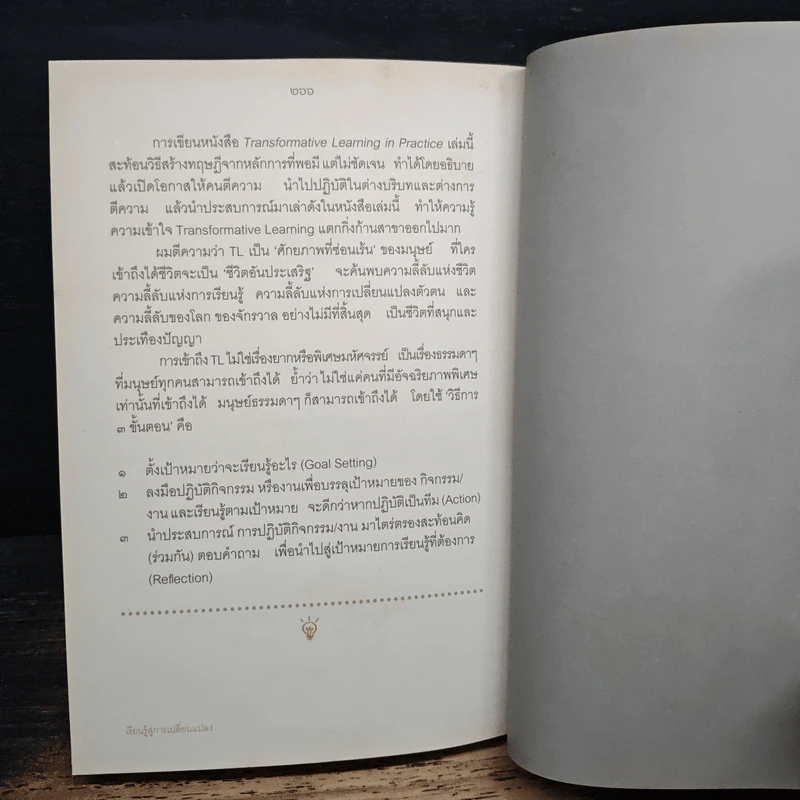 ๒๖๖
การเขียนหนังสือ Transformative Learning in Practice เล่มนี้
สะท้อนวิธีสร้างทฤษฎีจากหลักการที่พอมี แต่ไม่ชัดเจน ทำได้โดยอธิบาย
แล้วเปิดโอกาสให้คนตีความ นำไปปฏิบัติในต่างบริบทและต่างการ
ตีความ แล้วนำประสบการณ์มาเล่าดังในหนังสือเล่มนี้ ทำให้ความรู้
ความเข้าใจ Transformative Learning แตกกิ่งก้านสาขาออกไปมาก
ผมตีความว่า TL เป็น ‘ศักยภาพที่ซ่อนเร้น’ ของมนุษย์ ที่ใคร
เข้าถึงได้ชีวิตจะเป็น ‘ชีวิตอันประเสริฐ’ จะค้นพบความลี้ลับแห่งชีวิต
ความลี้ลับแห่งการเรียนรู้ ความลี้ลับแห่งการเปลี่ยนแปลงตัวตน และ
ความลี้ลับของโลก ของจักรวาล อย่างไม่มีที่สิ้นสุด เป็นชีวิตที่สนุกและ
ประเทืองปัญญา
การเข้าถึง TL ไม่ใช่เรื่องยากหรือพิเศษมหัศจรรย์ เป็นเรื่องธรรมดาๆ
ที่มนุษย์ทุกคนสามารถเข้าถึงได้ ย้ำว่า ไม่ใช่แค่คนที่มีอัจฉริยภาพพิเศษ
เท่านั้นที่เข้าถึงได้ มนุษย์ธรรมดาๆ ก็สามารถเข้าถึงได้ โดยใช้ ‘วิธีการ
๓ ขั้นตอน’ คือ
๑ ตั้งเป้าหมายว่าจะเรียนรู้อะไร (Goal Setting)
๒ ลงมือปฏิบัติกิจกรรม หรืองานเพื่อบรรลุเป้าหมายของ กิจกรรม/
งาน และเรียนรู้ตามเป้าหมาย จะดีกว่าหากปฏิบัติเป็นทีม (Action)
๓ นำประสบการณ์ การปฏิบัติกิจกรรม/งาน มาไตร่ตรองสะท้อนคิด
(ร่วมกัน) ตอบคำถาม เพื่อนำไปสู่เป้าหมายการเรียนรู้ที่ต้องการ
(Reflection)
เรียนรู้สู่การเปลี่ยนแปลง